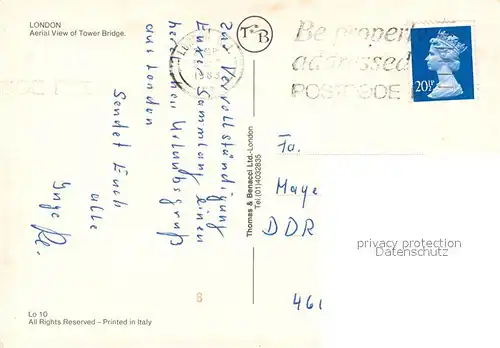 LONDON
Aerial View of Tower Bridge.
Zur Vervollständigung
Eurer Sammlung einen
herzlichen Urlaubsgruß
aus London
Sendet Euch
alle
Inge
T&B
Be properly
addressed
POSTCODE
20½P
Thomas & Benacci Ltd.-London
Tel.(01)4032835
Fa.
Maye
DDR
461
privacy protection
www.ansichtskartenversand.com
8
Lo 10
All Rights Reserved – Printed in Italy